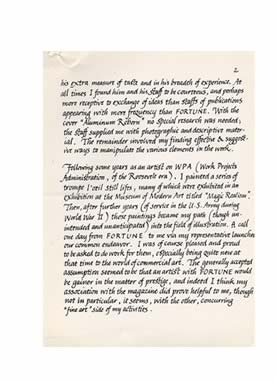 2
his extra measure of taste and in his breadth of experience. At
all times I found him and his staff to be courteous, and perhaps
more receptive to exchange of ideas than staffs of publications
appearing with more frequency than FORTUNE. With the
cover "Aluminum Reborn" no special research was needed;
the staff supplied me with photographic and descriptive mater-
ial. The remainder involved my finding effective & sugges-
tive ways to manipulate the various elements in the work.
Following some years as an artist on WPA (Work Projects
Administration, of the Roosevelt era). I painted a series of
trompe l'oeil still lifes, many of which were exhibited in an
exhibition at the Museum of Modern Art titled "Magic Realism".
Then, after further years (of service in the U.S. Army during
World War II) these paintings became my path (though un-
intended and unanticipated) into the field of illustration. A call
one day from FORTUNE to me via my representative launched
our common endeavor. I was of course pleased and proud
to be asked to do work for them, especially being quite new at
that time to the world of commercial art. The generally accepted
assumption seemed to be that an artist with FORTUNE would
be gainer in the matter of prestige, and indeed I think my
association with the magazine did prove helpful to me, though
not in particular, it seems, with the other, concurring
"fine art" side of my activities.